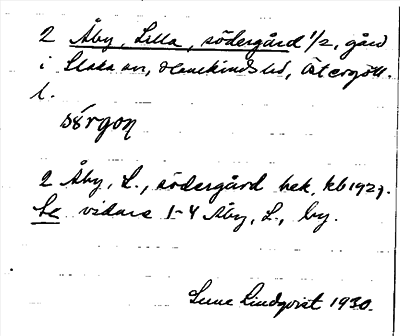 2 Åby, Lilla, södergård 1/2, gård
i Slaka sn, Hanekinds hd, Östergötl.
l.
sö̀rgọn
2 Åby, L., södergård bek. kb 1927.
Se vidare 1-4 Åby, L., by.
Sune Lindqvist 1930.